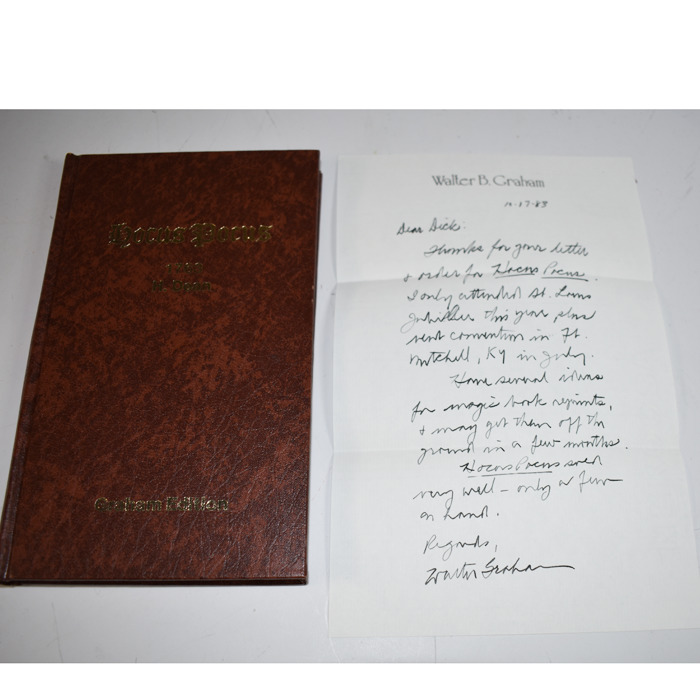 Hocus Pocus
Graham Edition
Walter B. Graham
10-17-83
Dear Dick:
Thanks for your letter
& order for Hocus Pocus.
I only attended St. Louis
this year plus
vent convention in Ft.
Mitchell, KY in July.
Have several ideas
for magic book reprints,
& may get them off the
ground in a few months.
Hocus Pocus sold
very well - only a few
on hand.
Regards,
Walter Graham